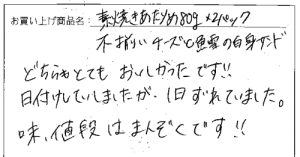 お買い上げ商品名: 素焼きあたりめ80g×2パック
不揃いチーズと魚雪の白身サンド
どちらもとても おいしかったです!!
日付していしましたが、1日ずれていました。
味、値段はまんぞくです!!